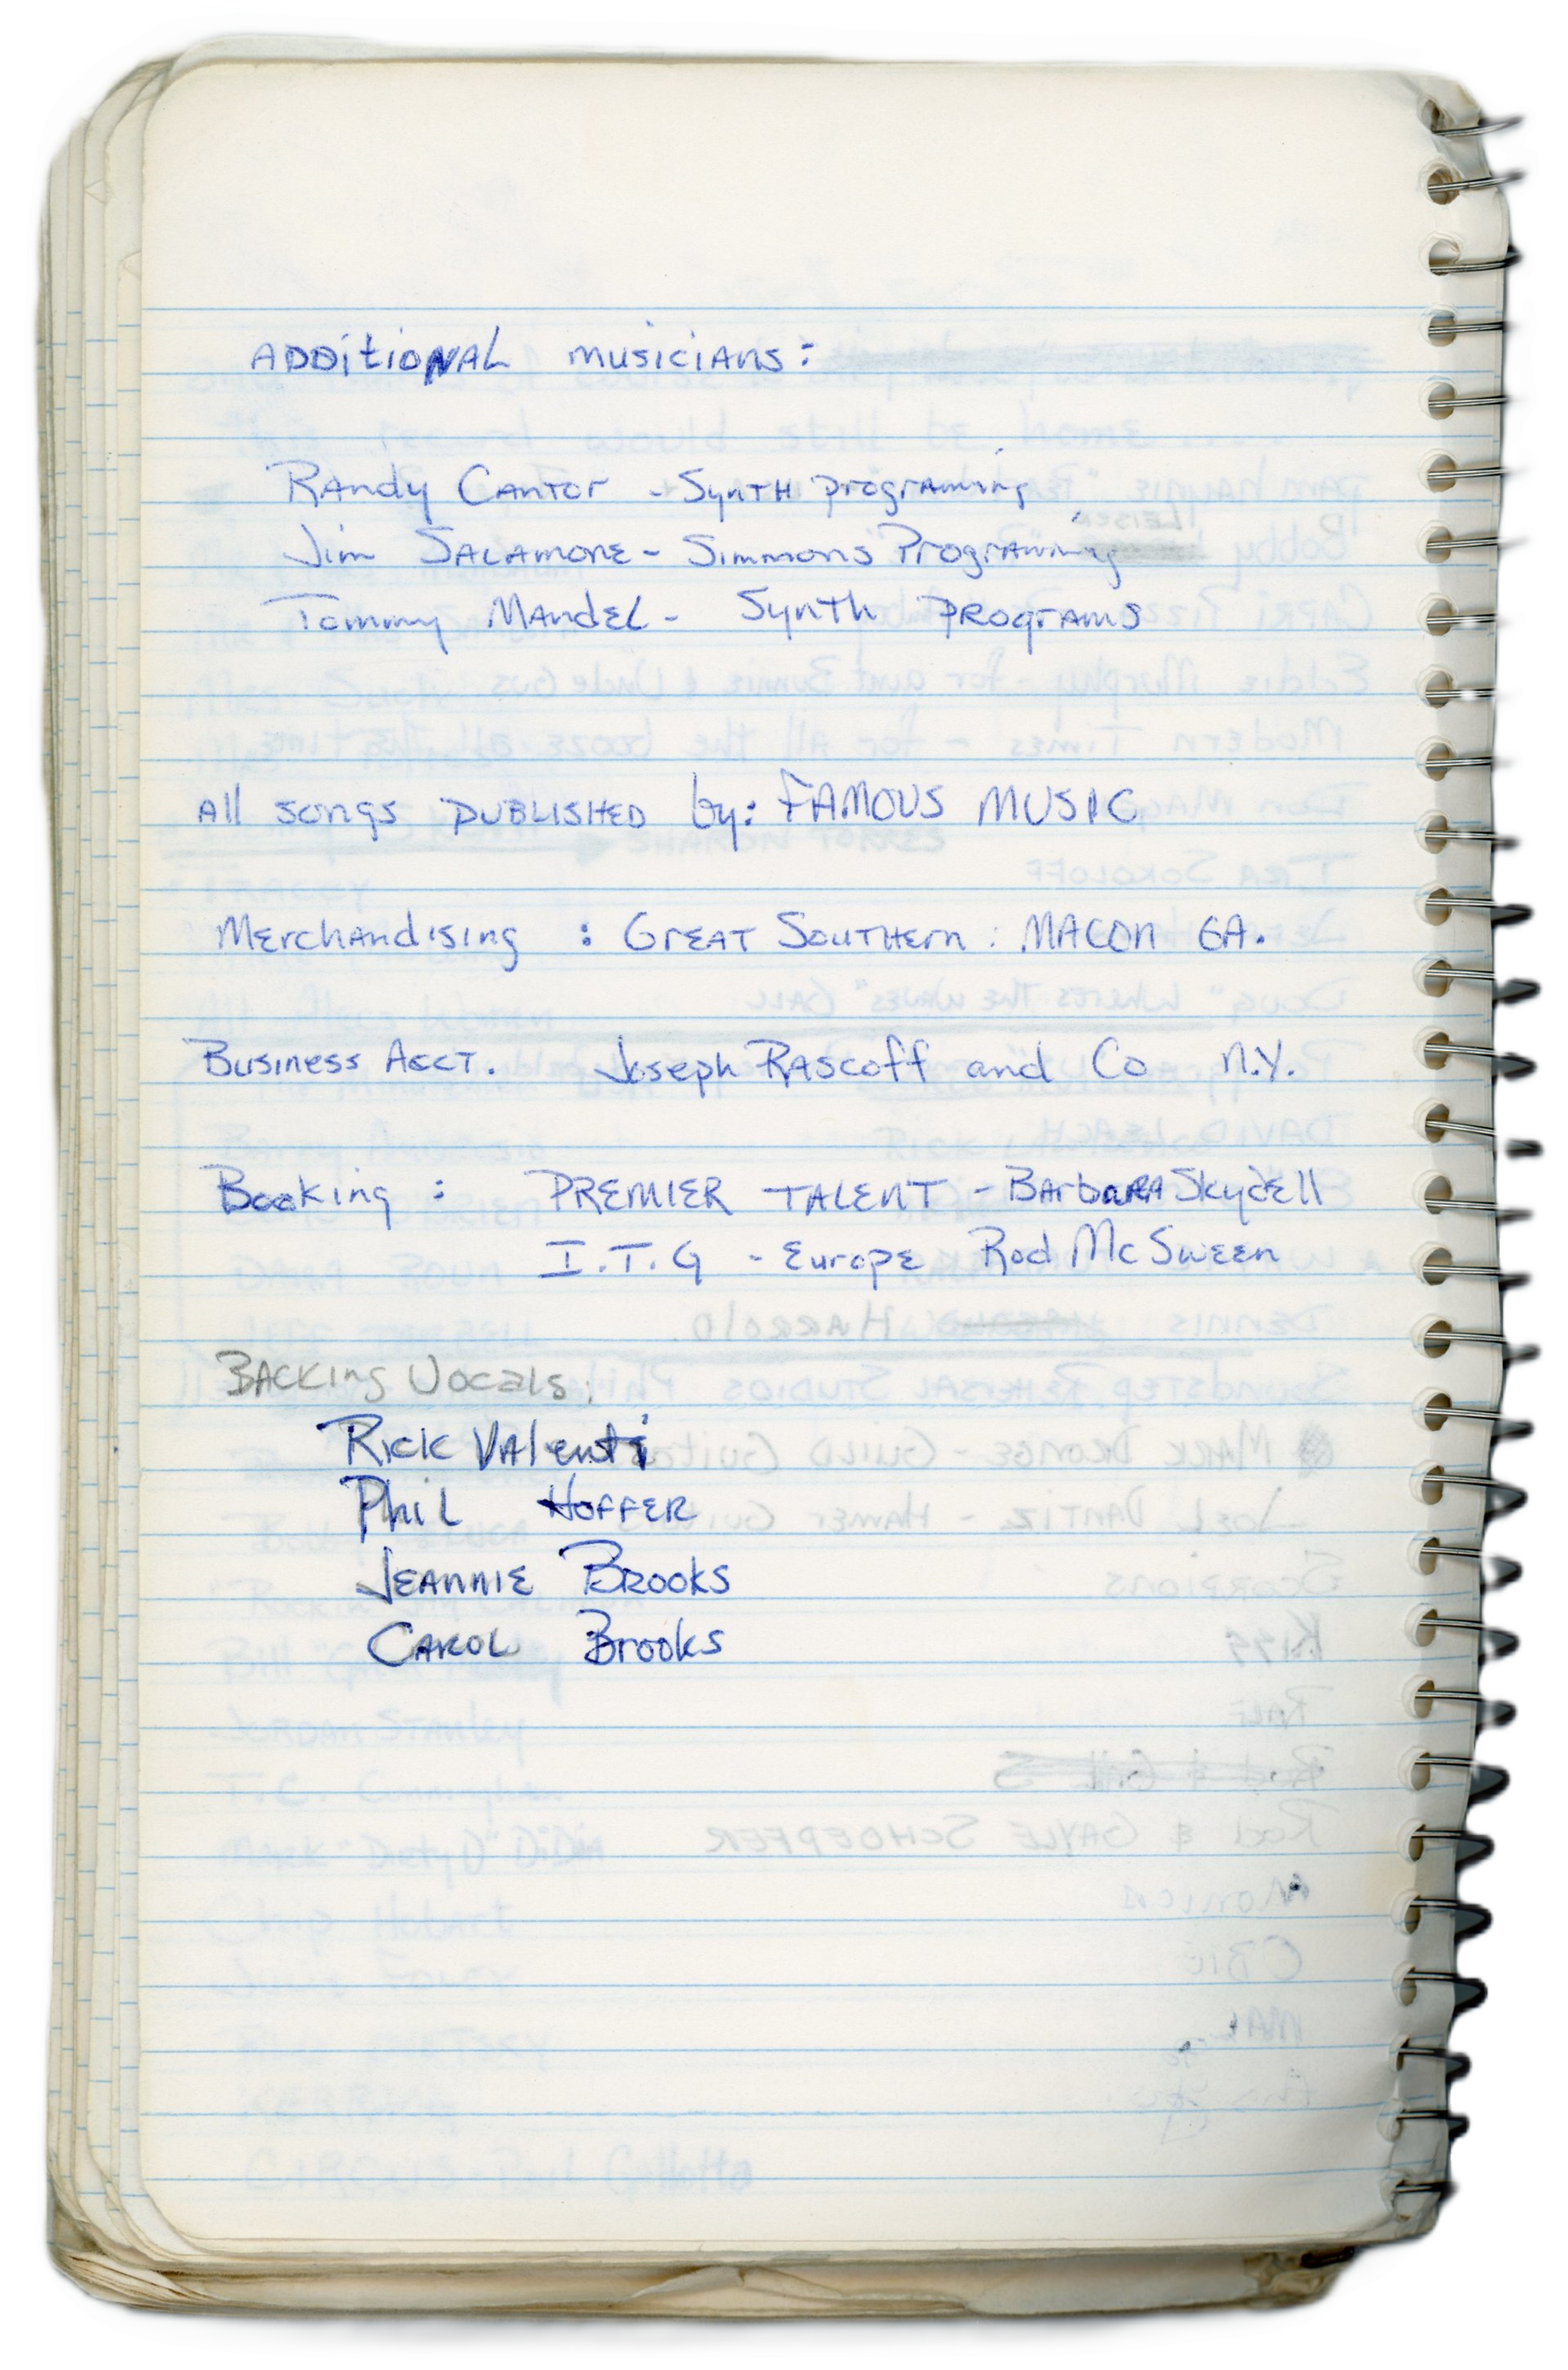 ADDitioNAL musiciAns:
RAndy CAntor - SynTH programing
Jim SALAMONE - Simmons Programing
Tommy MAndEL - Synth PROgrAMS
All songs PUBLISHED by: FAMOUS MUSIC
MErchAndising : GrEAT SouTHErn : MACON GA.
Business Acct. Joseph RAscoff and Co N.Y.
Booking : PREMIER TALENT - BArbARA Skydell
I.T.G - EuropE Rod Mc Sween
BAcking Vocals:
Rick VAlenti
Phil HOFFER
JEANNIE BROOKS
CAROL Brooks